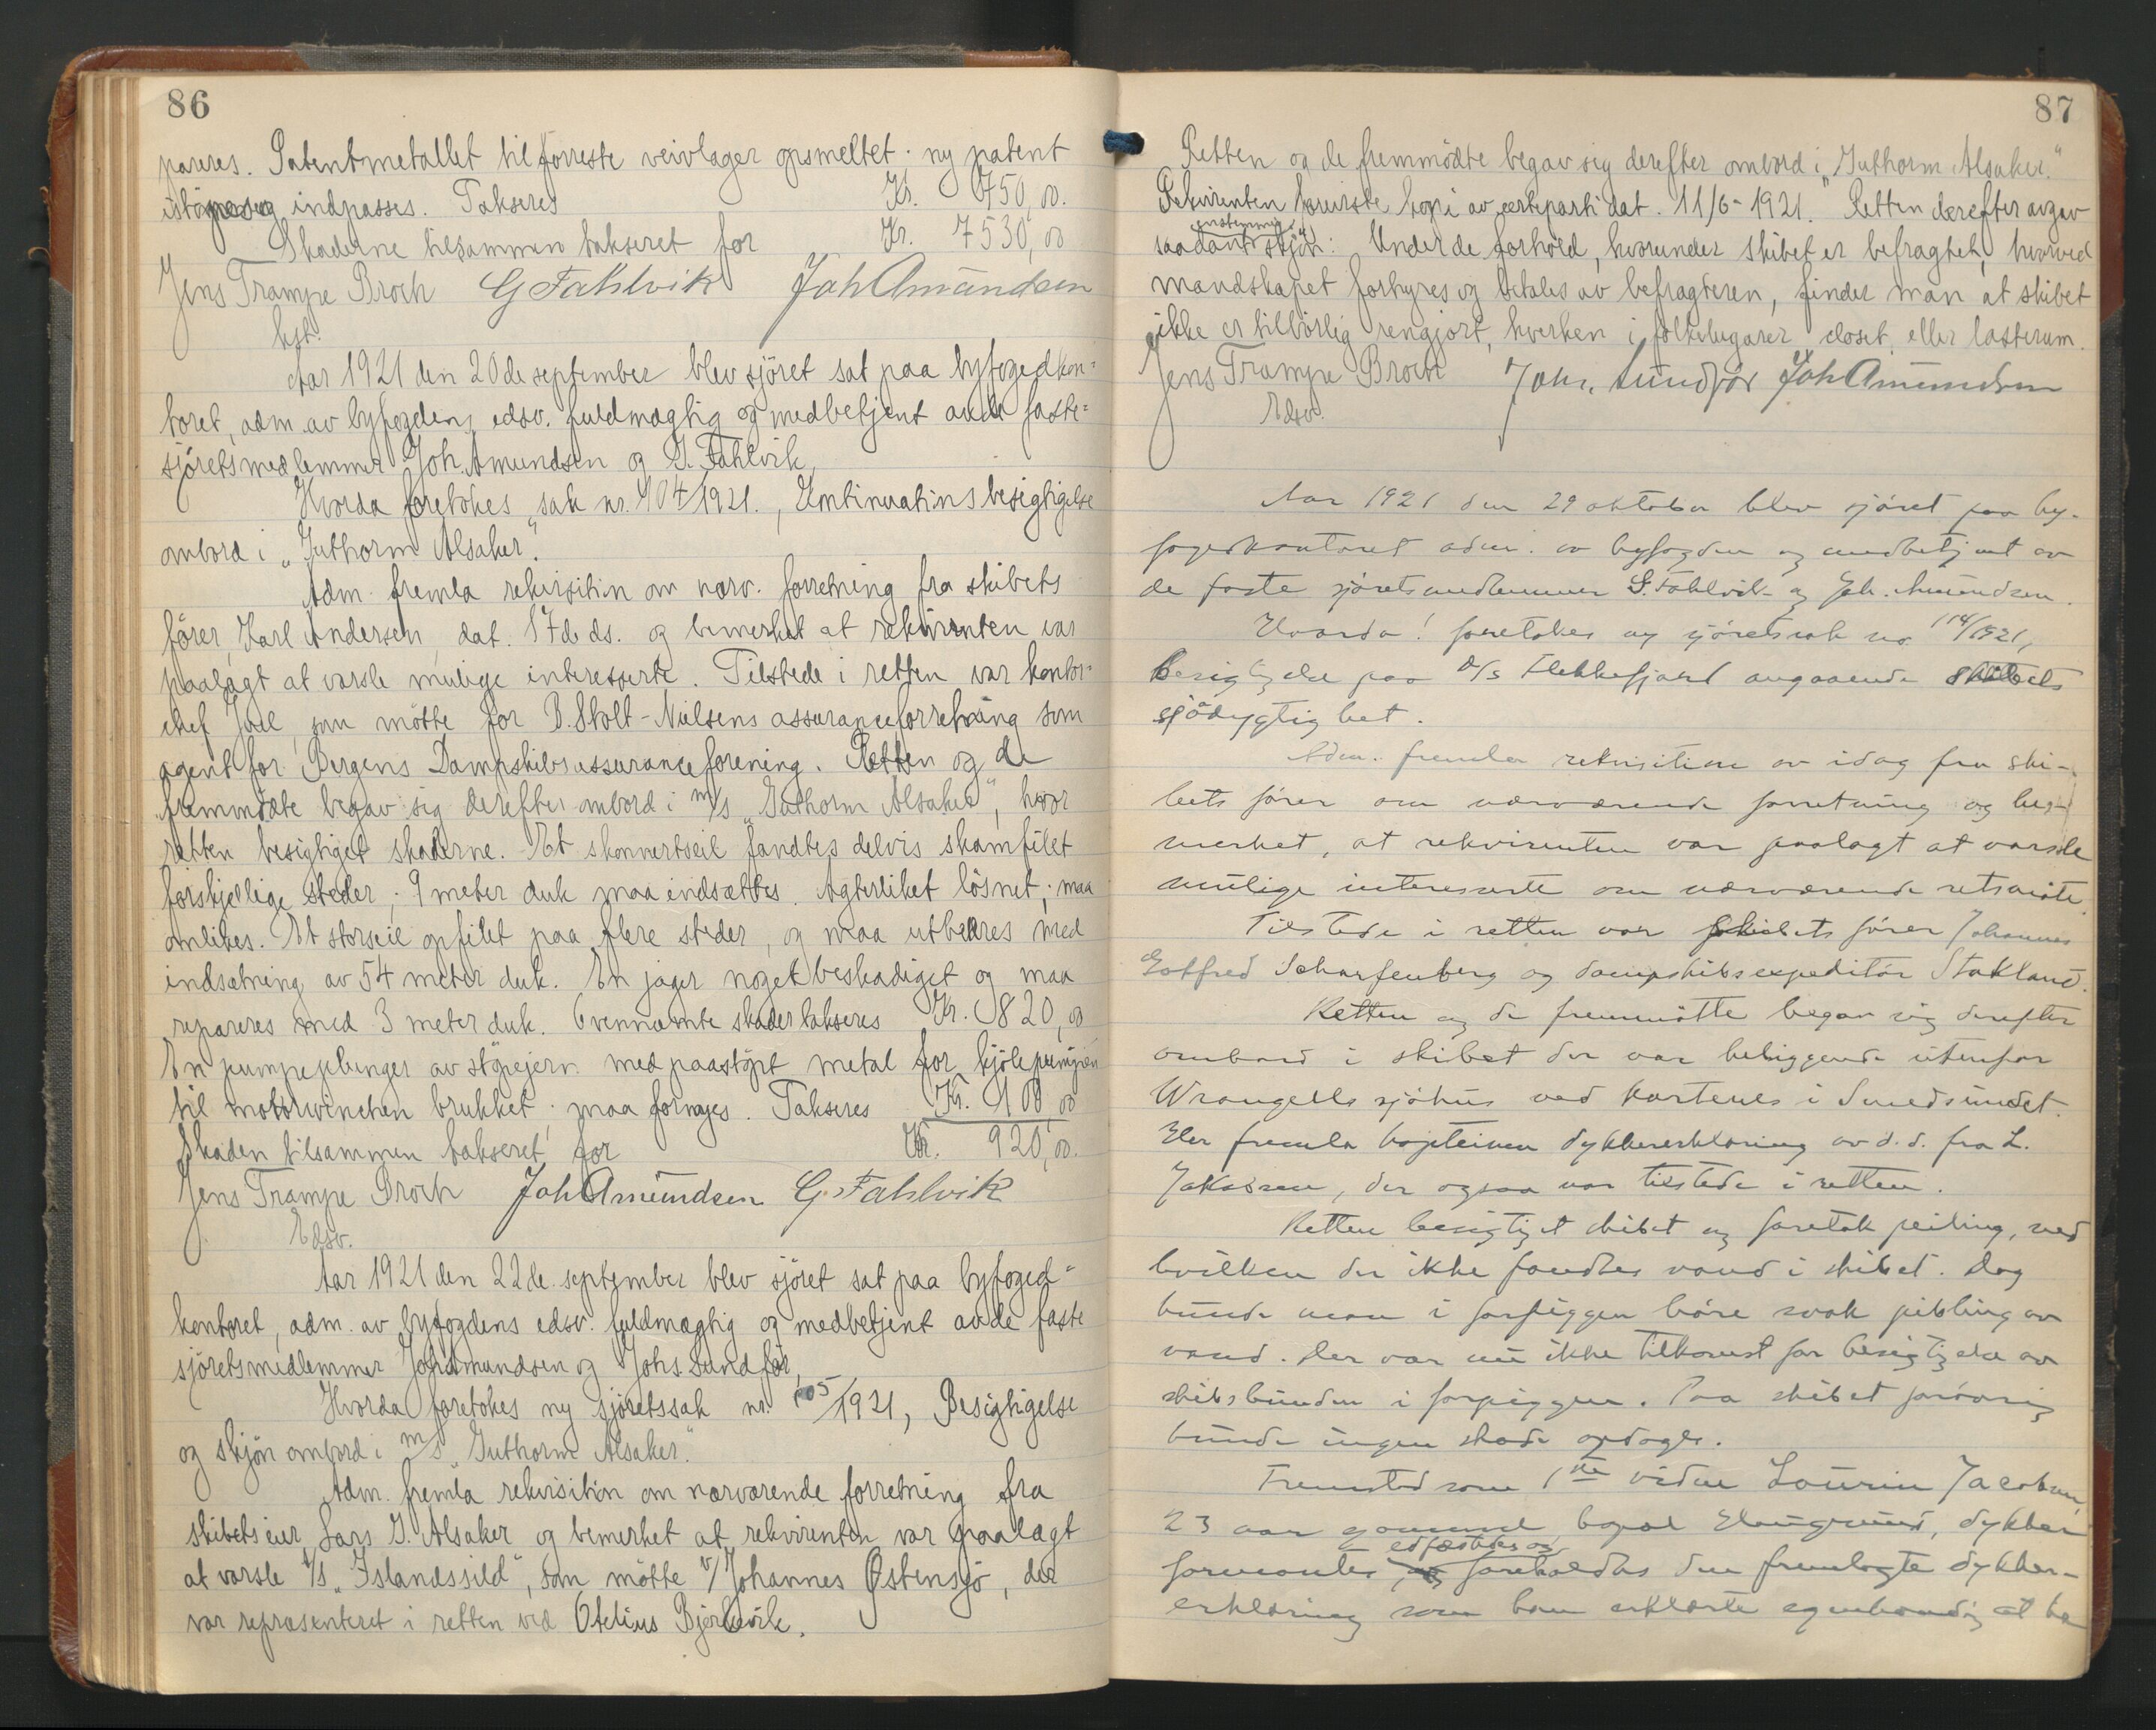 86
pareres. Patentmetallet til forreste veivlager opsmeltet. ny patent
istöpes og indpasses. Takseres Kr. 750,00.
Skaderne tilsammen takseret for Kr. 7530,00
Jens Trampe Broch G Fahlvik Joh Amundsen
kst.
Aar 1921 den 20de september blev sjöret sat paa byfogedkon=
toret, adm. av byfogdens edsv. fuldmægtig og medbetjent av de faste=
sjöretsmedlemmer Joh. Amundsen og G. Fahlvik,
Hvorda foretokes sak nr. 104/1921., Kontinuationsbesigtigelse
ombord i „Guthorm Alsaker".
Adm. fremla rekvisition om nærv. forretning fra skibets
förer, Karl Andersen, dat. 17de ds. og bemerket at rekvirenten var
paalagt at varsle mulige interesserte. Tilstede i retten var kontor=
chef Juel, som mötte for B. Stolt-Nielsens assuranceforretning som
agent for Bergens Dampskibsassuranceforening. Retten og de
fremmödte begav sig derefter ombord i m/s „Guthorm Alsaker", hvor
retten besigtiget skaderne. Et skonnertseil fandtes delvis skamfilet
forskjellige steder; 9 meter duk maa indsættes. Agterliket lösnet; maa
omlikes. Et storseil opfilet paa flere steder, og maa utbedres med
indsætning av 54 meter duk. En jager noget beskadiget og maa
repareres med 3 meter duk. Ovennævnte skader takseres Kr. 820,00
En pumpeplunger av stöpejern med paastöpt metal for kjölepumpen
til motorwinchen brukket; maa fornyes. Takseres Kr. 100,00
Skaden tilsammen takseret for Kr. 920,00.
Jens Trampe Broch Joh Amundsen G. Fahlvik
Edsv.
Aar 1921 den 22de september blev sjöret sat paa byfoged=
kontoret, adm. av byfogdens edsv. fuldmægtig og medbetjent av de faste
sjöretsmedlemmer Joh Amundsen og Johs Sundför,
Hvorda foretokes ny sjöretssak nr. 105/1921, Besigtigelse
og skjön ombord i m/s „Guthorm Alsaker".
Adm. fremla rekvisition om nærværende forretning fra
skibets eier Lars G. Alsaker og bemerket at rekvirenten var paalagt
at varsle A/s „Islandssild", som mötte v/ Johannes Østensjö, der
var repræsenteret i retten ved Otelius Bjerkevik.
87
Retten og de fremmödte begav sig derefter ombord i „Guthorm Alsaker."
Rekvirenten foreviste kopi av certeparti dat. 11/6-1921. Retten derefter avgav
enstemmig
saadant skjön: Under de forhold, hvorunder skibet er befragtet, hvorved
mandskapet forhyres og betales av befragteren, finder man at skibet
ikke er tilbörlig rengjort, hverken i folkelugarer, closet, eller lasterum.
Jens Trampe Broch Johs. Sundför Joh Amundsen
Edsv.
Aar 1921 den 29 oktober blev sjöret paa by-
fogedkontoret adm. av byfogden og medbetjent av
de faste sjöretsmedlemmer G. Fahlvik og Joh. Amundsen.
Hvorda! foretokes ny sjöretssak no. 114/1921,
Besigtigelse paa D/S Flekkefjord angaaende skibets
sjödygtighet.
Adm. fremla rekvisition av idag fra ski-
bets förer om nærværende forretning og be-
merket, at rekvirenten var paalagt at varsle
mulige interesserte om nærværende retsmöte.
Tilstede i retten var skibets förer Johannes
Gotfred Scharfenberg og dampskibsexpeditör Stakland.
Retten og de fremmötte begav sig derefter
ombord i skibet der var beliggende utenfor
Wrangells sjöhus ved Kortenes i Smedsundet.
Her fremla kapteinen dykkererklæring av d.d. fra L.
Jakobsen, der ogsaa var tilstede i retten.
Retten besigtiget skibet og foretok peiling, ved
hvilken der ikke fandtes vand i skibet. Dog
kunde man i forpiggen höre svak pibling av
vand. Der var nu ikke tilkomst for besigtigelse av
skibsbunden i forpiggen. Paa skibet forövrig
kunde ingen skade opdages.
Fremsted som 1ste vidne Laurin Jacobsen,
23 aar gammel, bopæl Haugesund, dykker
edfæstedes og
formantes, foreholdtes den fremlagte dykker-
erklæring som han erklærte egenhændig at ha